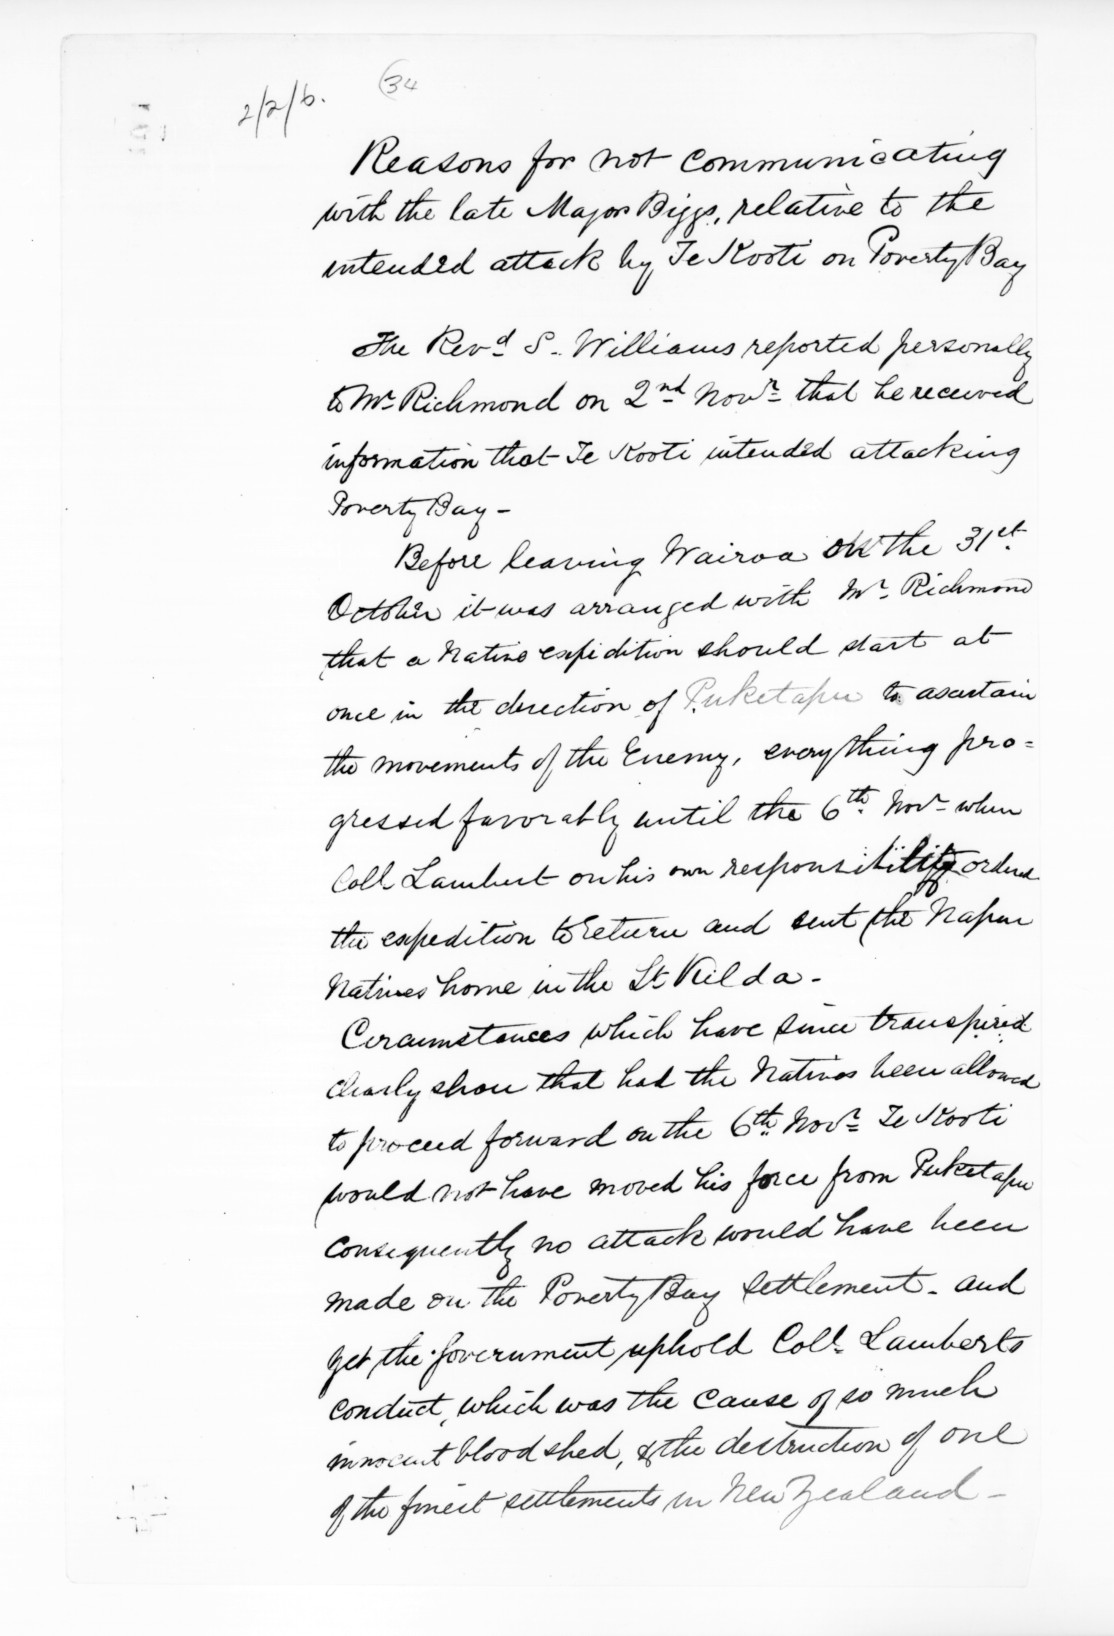 2/2/6.
(34
Reasons for not communicating
with the late Major Biggs, relative to the
intended attack by Te Kooti on Poverty Bay
The Revd S. Williams reported personally
to Mr Richmond on 2nd Novr that he received
information that Te Kooti intended attacking
Poverty Bay -
Before leaving Wairoa on the 31st
October it was arranged with Mr Richmond
that a Native expidition should start at
once in the direction of Puketapu to ascertain
the movements of the Enemy, everything pro=
gressed favorably until the 6th Novr when
Coll Lambert on his own responsibility ordered
the expedition to return and sent the Napier
Natives home in the St Kilda -
Circumstances which have since transpired
clearly show that had the Natives been allowed
to proceed forward on the 6th Novr Te Kooti
would not have moved his force from Puketapu
consequently no attack would have been
made on the Poverty Bay settlement - and
yet the Government uphold Coll Lamberts
conduct, which was the cause of so much
innocent blood shed, & the destruction of one
of the finest settlements in New Zealand -